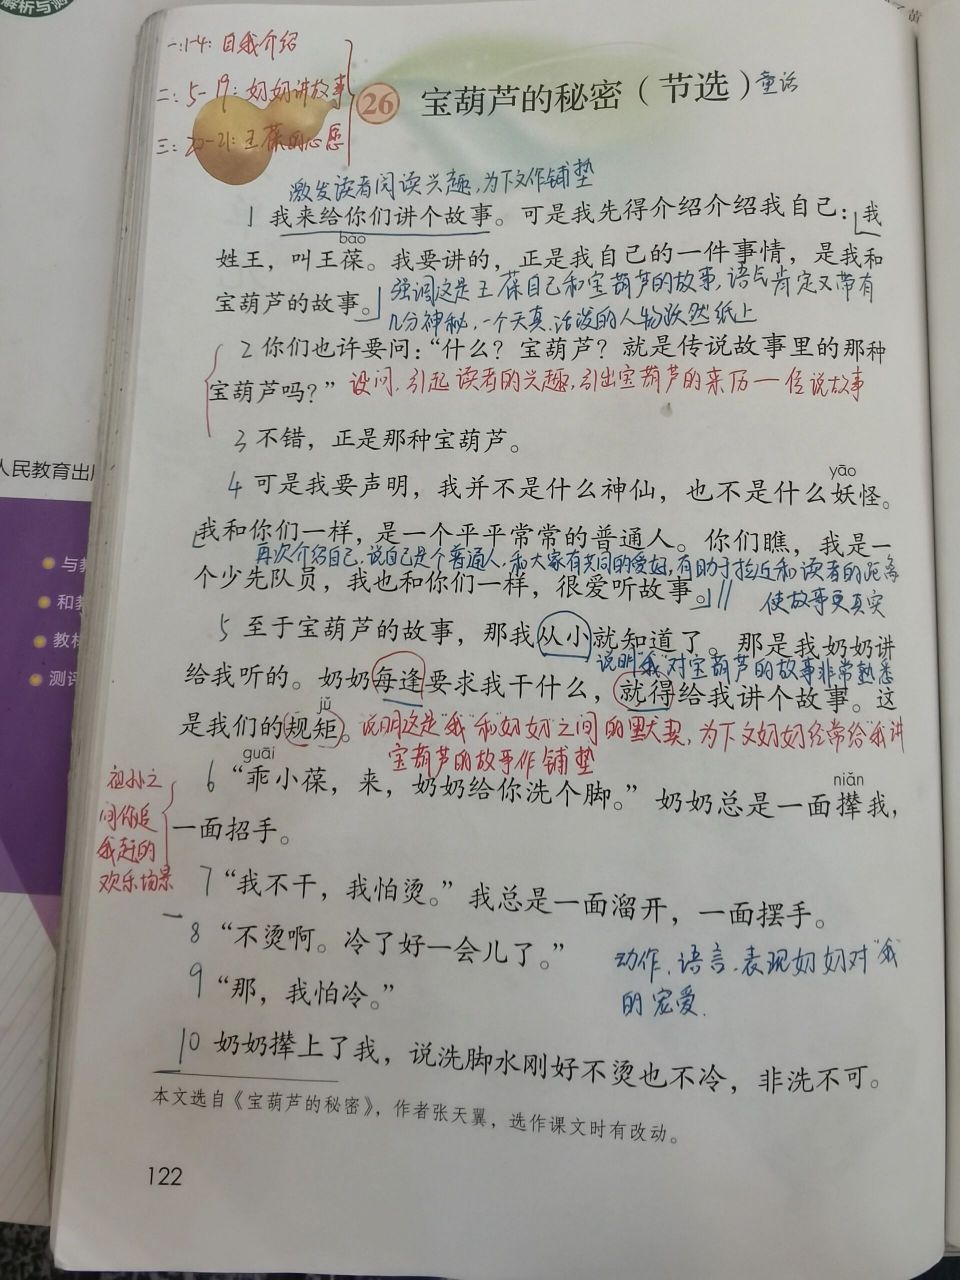 解析与测
一:1-4: 自我介绍
二: 5-19: 奶奶讲故事
三: 20-21: 王葆的心愿
26 宝葫芦的秘密(节选) 童话
激发读者阅读兴趣,为下文作铺垫
1 我来给你们讲个故事。可是我先得介绍介绍我自己:我
bǎo
姓王,叫王葆。我要讲的,正是我自己的一件事情,是我和
宝葫芦的故事。 强调这是王葆自己和宝葫芦的故事,语气肯定又带有
几分神秘,一个天真、活泼的人物跃然纸上
2 你们也许要问:“什么?宝葫芦?就是传说故事里的那种
宝葫芦吗?” 设问,引起读者的兴趣,引出宝葫芦的来历一传说故事
3 不错,正是那种宝葫芦。
yāo
4 可是我要声明,我并不是什么神仙,也不是什么妖怪。
我和你们一样,是一个平平常常的普通人。你们瞧,我是一
再次介绍自己,说自己是个普通人,和大家有共同的爱好,有助于拉近和读者的距离
个少先队员,我也和你们一样,很爱听故事。
使故事更真实
5 至于宝葫芦的故事,那我从小就知道了。那是我奶奶讲
说明“我”对宝葫芦的故事非常熟悉
给我听的。奶奶每逢要求我干什么,就得给我讲个故事。这
jǔ
是我们的规矩。 说明这是“我”和“奶奶”之间的默契,为下文奶奶经常给“我”讲
宝葫芦的故事作铺垫
guāi
niǎn
6 “乖小葆,来,奶奶给你洗个脚。”奶奶总是一面撵我,
一面招手。
祖孙之
间你追
我赶的
欢乐场景
7 “我不干,我怕烫。”我总是一面溜开,一面摆手。
8 “不烫啊。冷了好一会儿了。”
9 “那,我怕冷。”
动作、语言,表现奶奶对“我”
的宠爱.
10 奶奶撵上了我,说洗脚水刚好不烫也不冷,非洗不可。
本文选自《宝葫芦的秘密》,作者张天翼,选作课文时有改动。
122
人民教育出
与教
和教
教材
测评